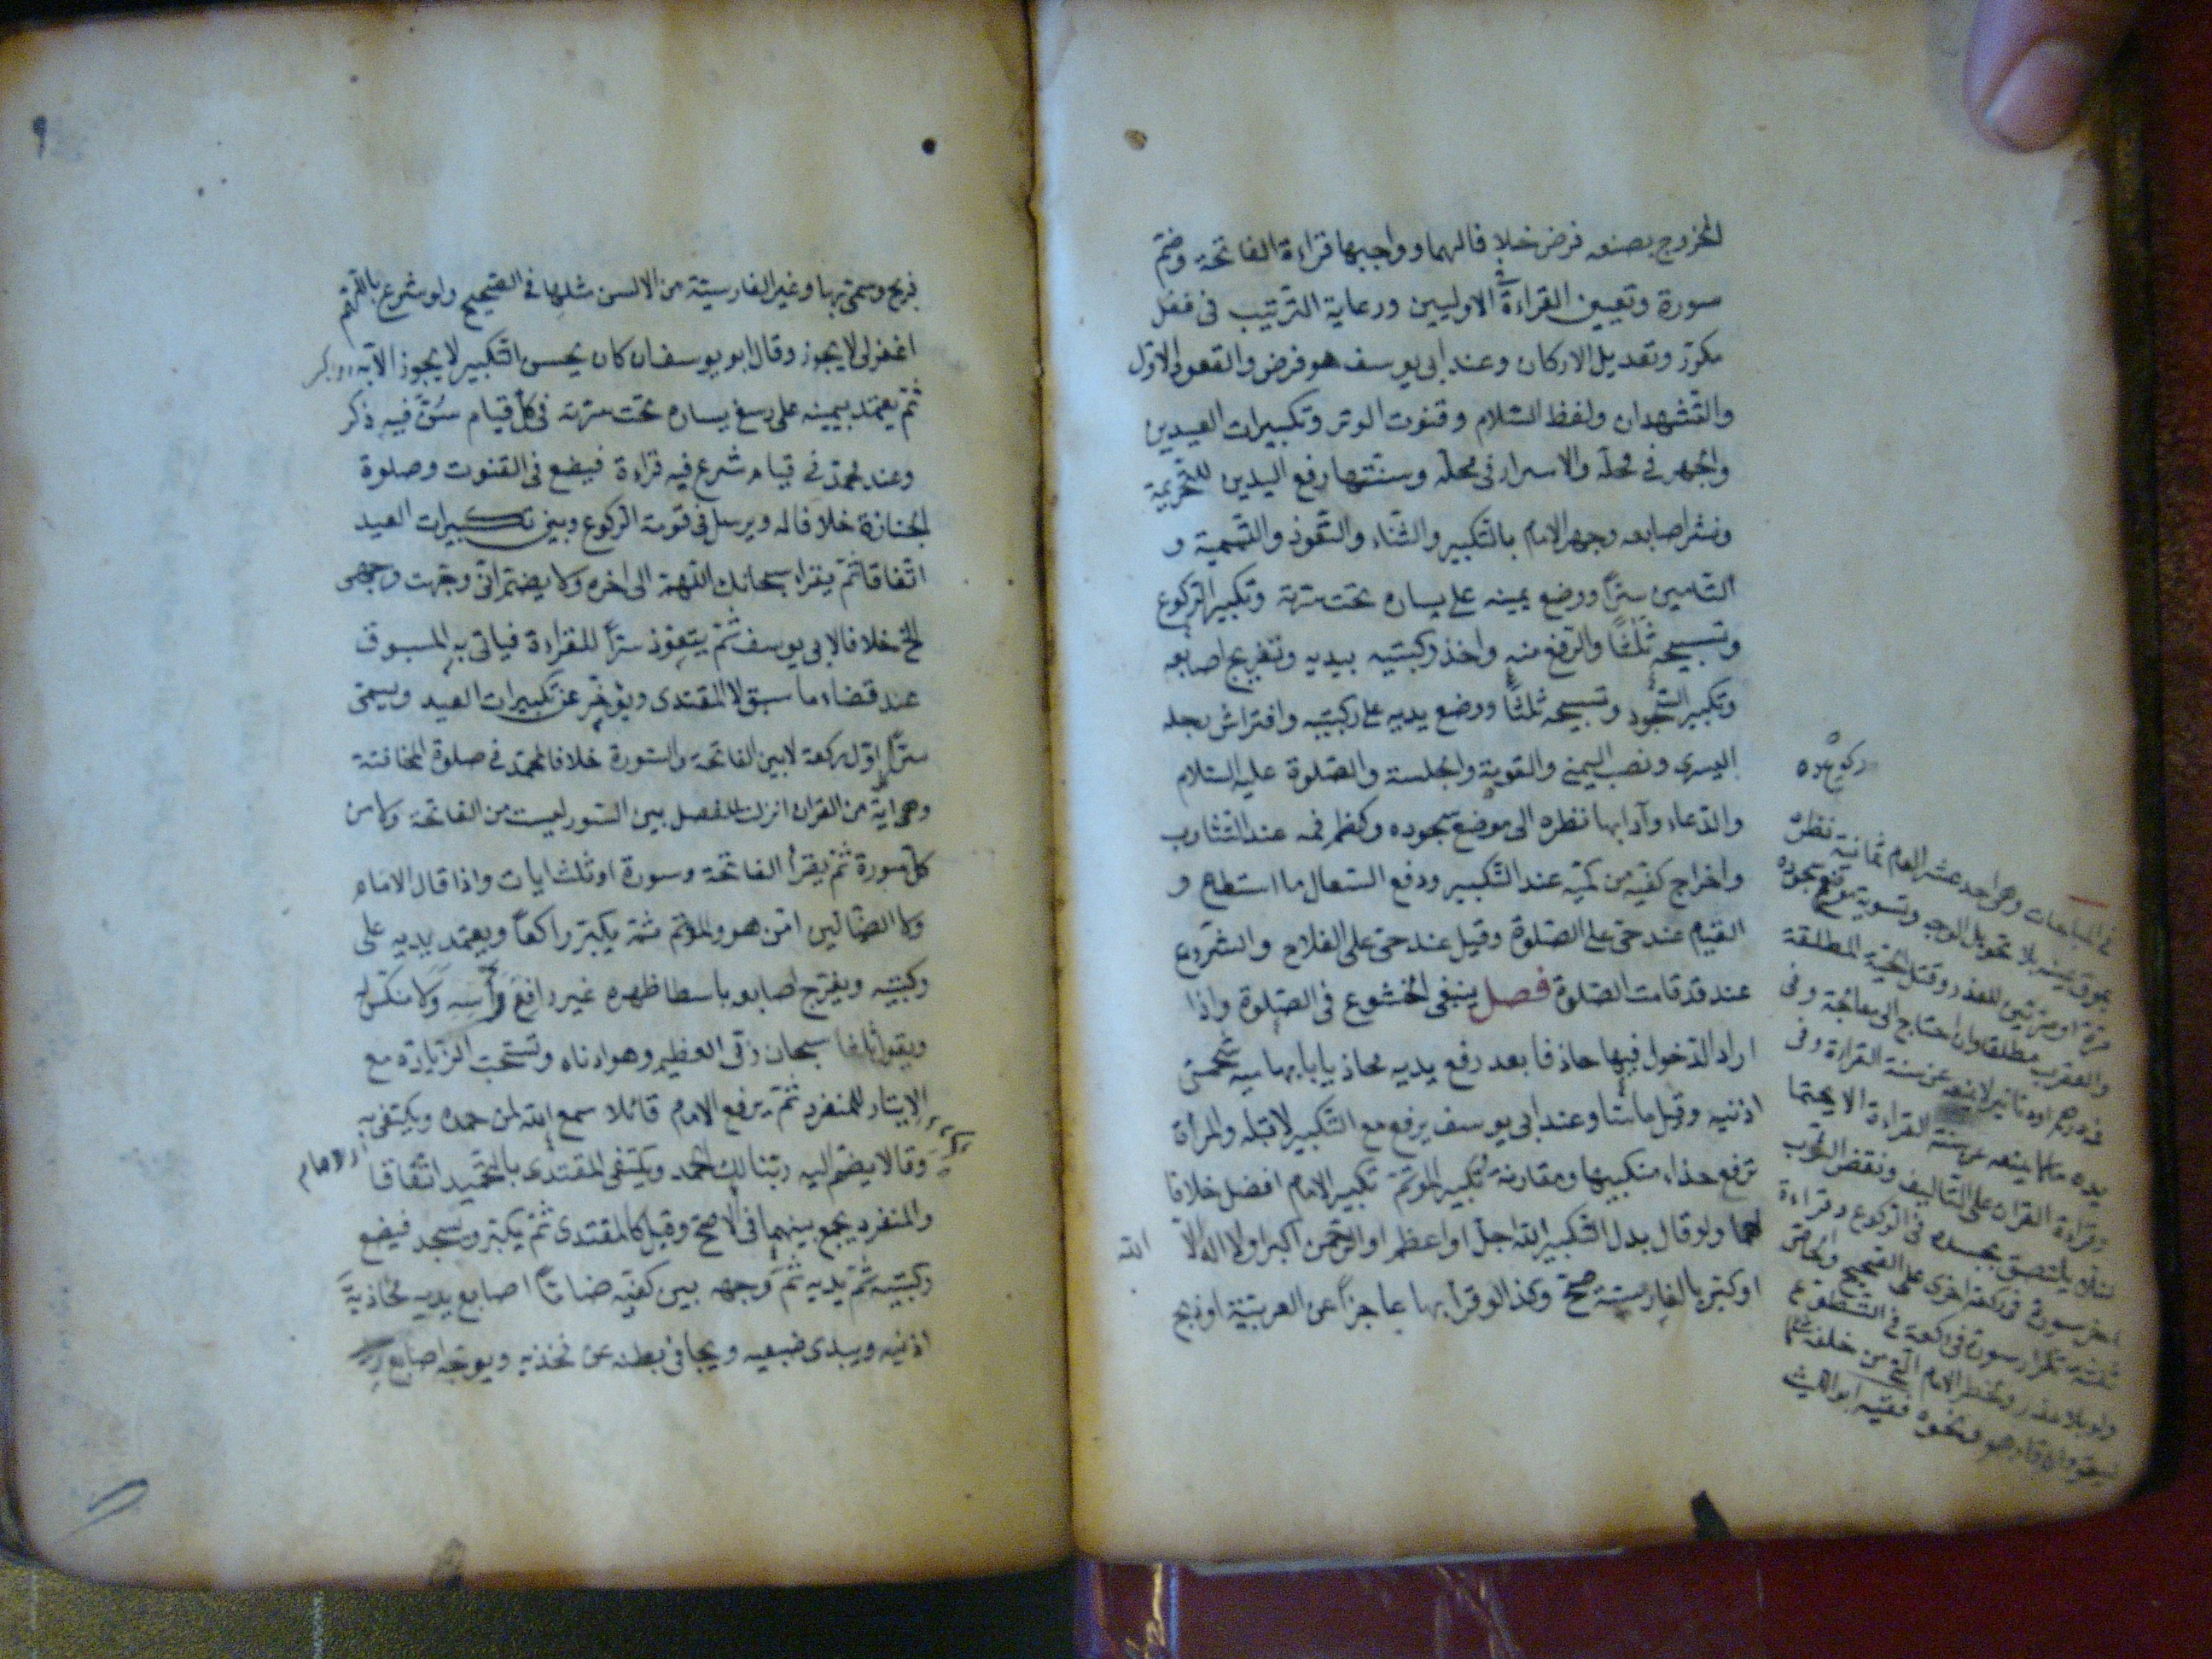 الخروج بصنعه فرض خلافا لهما وواجبها قراءة الفاتحة وضم
سورة وتعيين القراءة في الاوليين ورعاية الترتيب فى فعل
مكرر وتعديل الاركان وعند ابى يوسف هو فرض والقعود الاول
والتشهدان ولفظ السلام وقنوت الوتر وتكبيرات العيدين
والجهر فى محله والاسرار فى محله وسننها رفع اليدين للتحريمة
ونشر اصابعه وجهر الامام بالتكبير والثناء والتعوذ والتسمية و
التأمين سرّاً ووضع يمينه على يساره تحت سرته وتكبير الركوع
وتسبيحه ثلثاً والرفع منه واخذ ركبتيه بيديه وتفريج اصابعه
وتكبير السجود وتسبيحه ثلثاً ووضع يديه على ركبتيه وافتراش رجله
اليسرى ونصب اليمنى والقومة والجلسة والصلوة عليه السلام
والدعاء وآدابها نظره الى موضع سجوده وكظم فمه عند التثاوب
واخراج كفيه من كميه عند التكبير ودفع السعال ما استطاع و
القيام عند حى على الصلوة وقيل عند حى على الفلاح والشروع
عند قد قامت الصلوة فصل ينبغى الخشوع فى الصلوة واذا
اراد الدخول فيها حاذفا بعد رفع يديه محاذيا بابهاميه شحمتى
اذنيه وقيل ماسّا وعند ابى يوسف يرفع مع التكبير لا قبله والمرأة
ترفع حذاء منكبيها ومقارنة تكبير المؤتم تكبير الامام افضل خلافا
لهما ولو قال بدل التكبير الله اجل او اعظم او الرحمن اكبر او لا اله الا الله
او كبر بالفارسية صح وكذا لو قرأ بها عاجزاً عن العربية او ذبح
ركوعده
فى المباحات وهى احد عشر العام ثمانية نظره
بموق عينيه بلا تحويل الوجه وتسوية موضع سجوده
مرة او مرتين للعذر وقتل الحية المطلقة
والعقرب مطلقا وان احتاج الى معالجة وفى
عن سنة القراءة وفى
عن سنة القراءة
وقراءة القران على التأليف ونقض الثوب
يلتصق بجسده فى الركوع وقراءة
اخر سورة فى ركعة اخرى على الصحيح
تكرار سورة فى ركعة فى التطوع
ولو بلا عذر الامام من خلفه
فقيه ابو الليث
٩
فذبح وسمى بها وغير الفارسية من الالسن مثلها فى الصحيح ولو شرع باللهم
اغفر لى لا يجوز وقال ابو يوسف ان كان يحسن التكبير لا يجوز الا به
ثم يعتمد بيمينه على رسغ يساره تحت سرته فى كل قيام سُنّ فيه ذكر
وعند محمد فى قيام شرع فيه قراءة فيضع فى القنوت وصلوة
الجنازة خلافا له ويرسل فى قومة الركوع وبين تكبيرات العيد
اتفاقا ثم يقراء سبحانك اللهم الى اخره ولا يضم انى وجهت وجهى
الخ خلافا لابى يوسف ثم يتعوذ سرّاً للقراءة فياتى به المسبوق
عند قضاء ما سبق لا المقتدى ويؤخر عن تكبيرات العيد ويسمى
سرّاً اول كل ركعة لا بين الفاتحة والسورة خلافا لمحمد فى صلوة المخافتة
وهى اية من القران انزلت للفصل بين السور ليست من الفاتحة ولا من
كل سورة ثم يقرأ الفاتحة وسورة او ثلث ايات واذا قال الامام
ولا الضالين امّن هو والمؤتم ثم يكبر راكعاً ويعتمد بيديه على
ركبتيه ويفرج اصابعه باسطا ظهره غير رافع رأسه ولا منكس له
ويقول ثلثا سبحان ربى العظيم وهو ادناه وتستحب الزيادة مع
الايتار للمنفرد ثم يرفع الامام قائلا سمع الله لمن حمده ويكتفى به الامام
وقالا يضم اليه ربنا لك الحمد ويكتفى المقتدى بالتحميد اتفاقا
والمنفرد يجمع بينهما فى الاصح وقيل كالمقتدى ثم يكبر ويسجد فيضع
ركبتيه ثم يديه ثم وجهه بين كفيه ضامّاً اصابع يديه محاذية
اذنيه ويبدى ضبعيه ويجافى بطنه عن فخذيه ويوجه اصابع